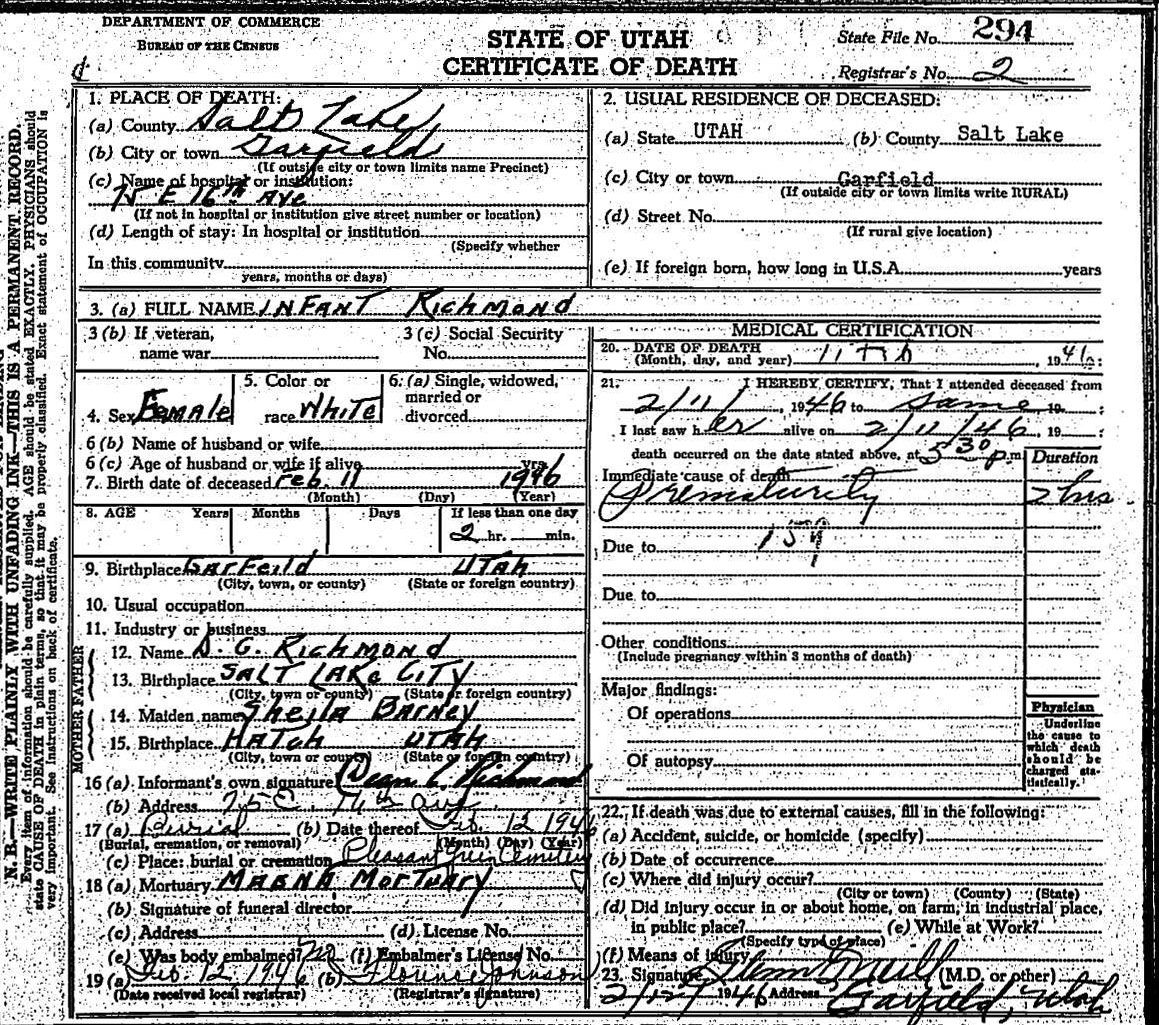 DEPARTMENT OF COMMERCE
BUREAU OF THE CENSUS
STATE OF UTAH
CERTIFICATE OF DEATH
State File No. 294
Registrar's No. 2
N. B.—WRITE PLAINLY WITH UNFADING INK—THIS IS A PERMANENT RECORD.
Every item of information should be carefully supplied. AGE should be stated EXACTLY. PHYSICIANS should
state CAUSE OF DEATH in plain terms, so that it may be properly classified. Exact statement of OCCUPATION is
very important. See instructions on back of certificate.
1. PLACE OF DEATH:
(a) County Salt Lake
(b) City or town Garfield
(If outside city or town limits name Precinct)
(c) Name of hospital or institution:
75 E 16th Ave
(If not in hospital or institution give street number or location)
(d) Length of stay: In hospital or institution
(Specify whether
In this community
years, months or days)
2. USUAL RESIDENCE OF DECEASED:
(a) State UTAH (b) County Salt Lake
(c) City or town Garfield
(If outside city or town limits write RURAL)
(d) Street No.
(If rural give location)
(e) If foreign born, how long in U.S.A. years
3. (a) FULL NAME INFANT RICHMOND
3 (b) If veteran,
name war
3 (c) Social Security
No.
4. Sex Female
5. Color or
race White
6. (a) Single, widowed,
married or
divorced
6 (b) Name of husband or wife
6 (c) Age of husband or wife if alive yrs.
7. Birth date of deceased Feb. 11 1946
(Month) (Day) (Year)
8. AGE Years Months Days If less than one day
2 hr. min.
9. Birthplace Garfeild UTAH
(City, town, or county) (State or foreign country)
10. Usual occupation
11. Industry or business
FATHER
12. Name D. G. RICHMOND
13. Birthplace SALT LAKE CITY
(City, town or county) (State or foreign country)
MOTHER
14. Maiden name Sheila Barney
15. Birthplace HATCH UTAH
(City, town or county) (State or foreign country)
16 (a) Informant's own signature Richmond
(b) Address 75 E. 16th Ave
17 (a) Burial (b) Date thereof Feb. 12 1946
(Burial, cremation, or removal) (Month) (Day) (Year)
(c) Place: burial or cremation Pleasant Green Cemetery
18 (a) Mortuary MAGNA MORTUARY
(b) Signature of funeral director
(c) Address (d) License No.
(e) Was body embalmed? no (f) Embalmer's License No.
19 (a) Feb. 12 1946 (b) Florence Johnson
(Date received local registrar) (Registrar's signature)
MEDICAL CERTIFICATION
20. DATE OF DEATH
(Month, day, and year) 11 Feb , 1946:
21. I HEREBY CERTIFY, That I attended deceased from
2/11/ , 1946 to same 19 :
I last saw her alive on 2/11/46 , 19
death occurred on the date stated above, at 5 30 p. m.
Duration
Immediate cause of death
Prematurity 2 hrs.
Due to 159
Due to
Other conditions
(Include pregnancy within 3 months of death)
Major findings:
Of operations
Of autopsy
Physician
Underline
the cause to
which death
should be
charged sta-
tistically.
22. If death was due to external causes, fill in the following:
(a) Accident, suicide, or homicide (specify)
(b) Date of occurrence
(c) Where did injury occur?
(City or town) (County) (State)
(d) Did injury occur in or about home, on farm, in industrial place,
in public place? (e) While at Work?
(Specify type of place)
(f) Means of injury
23. Signature (M.D. or other)
2/12/ 1946 Address Garfield, Utah